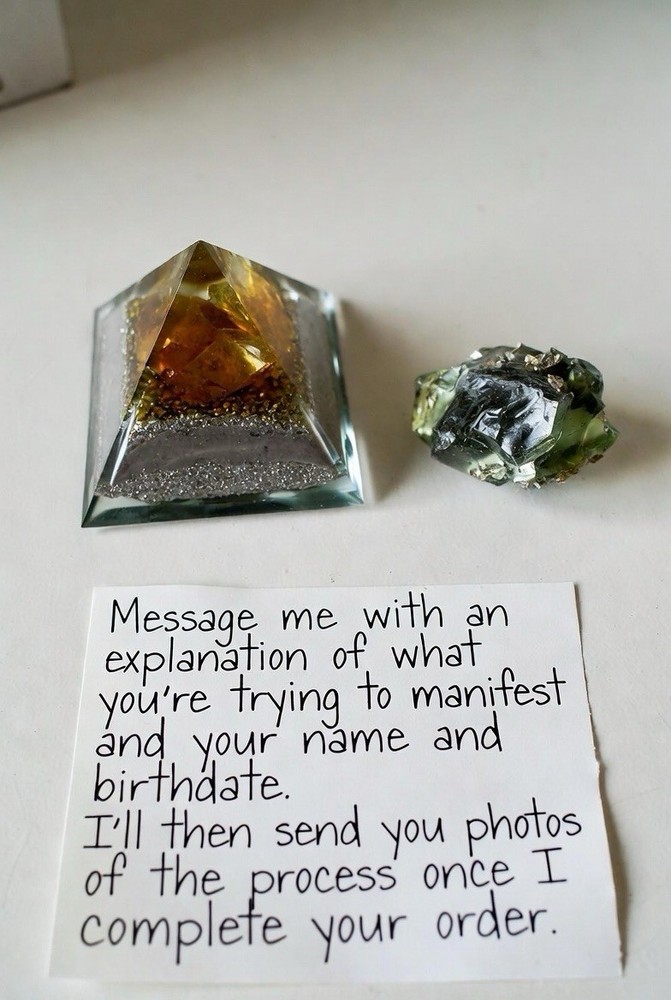 Message me with an
explanation of what
you're trying to manifest
and your name and
birthdate.
I'll then send you photos
of the process once I
complete your order.